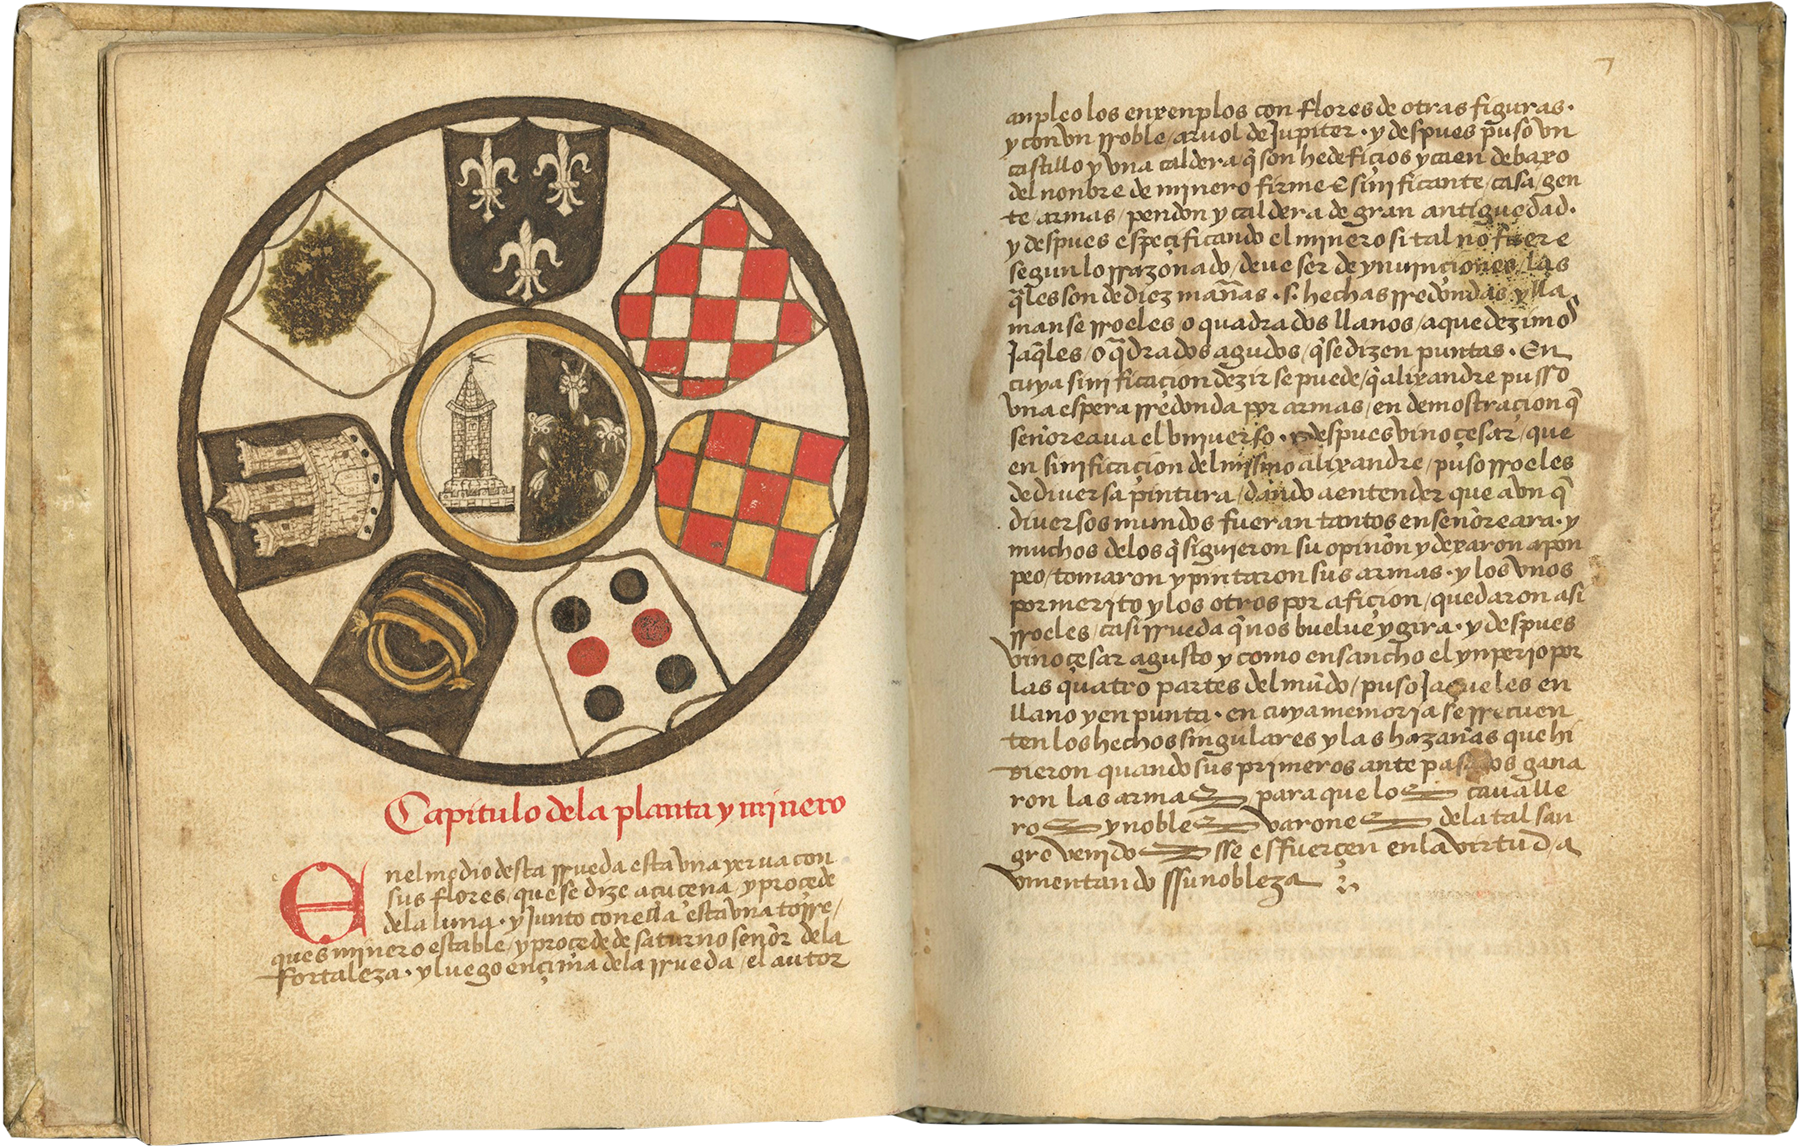 Capitulo de la planta y minero
En el medio desta rrueda esta vna yerua con
sus flores, que se dize açuçena / y proçede
de la luna · y junto con ella esta vna torre /
que es minero estable / y proçede de saturno señor de la
fortaleza · y luego ençima de la rrueda / el autor
7
anpleo los enxenplos con flores de otras figuras ·
y con vn rroble / aruol de Jupiter · y despues puso vn
castillo y vna caldera q̃ son hedefiçios y caen debaxo
del nonbre de minero firme E sinificante / casa / gen
te / armas / pendon y caldera de gran antiguedad ·
y despues espeçificando el minero si tal no fuere
segun lo rrazonado / deue ser de ynuinçiones / las
q̃les son de diez mañas · s · hechas rredondas y lla
manse rroeles o quadrados llanos / a que dezimos
Jaq̃les / o q̃drados agudos / q̃ se dizen puntas · En
cuya sinificaçion dezir se puede / q̃ alixandre pusso
vna espera rredonda por armas / en demostraçion q̃
señoreaua el vniuerso · y despues vino çesar / que
en sinificaçion del missmo alixandre / puso rroeles
de diuersa pintura / dando a entender que avn q̃
diuersos mundos fueran tantos enseñoreara · y
muchos de los q̃ siguieron su opinon y dexaron a pon
peo / tomaron y pintaron sus armas · y los vnos
por merito y los otros por afiçion / quedaron asi
rroeles / casi rrueda q̃ nos buelue y gira · y despues
vino çesar agusto y como ensancho el ynperio por
las quatro partes del mũdo / puso Jaqueles en
llano y en punta · en cuya memoria se rrecuen
ten los hechos singulares y las hazañas que hi
zieron quando sus primeros ante pasados gana
ron las armas para que los cavalle
ros y nobles varones de la tal san
gre venidos sse esfuerçen en la virtud / a
vmentando ssu nobleza